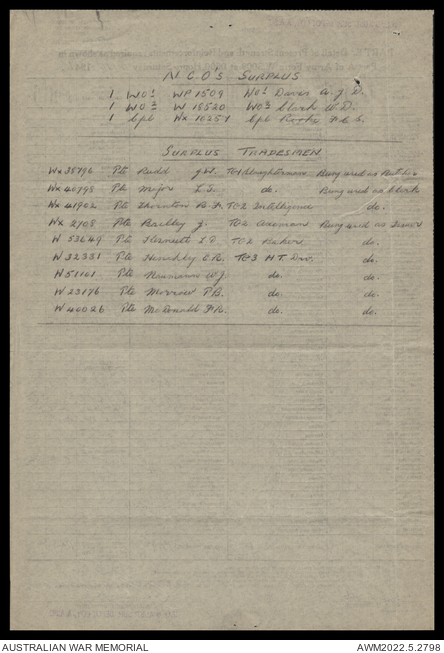 N.C.O's SURPLUS
1 WO1 WP 1509 WO1 Davis A.J.D.
1 WO2 W 18520 WO2 Clark W.D.
1 Cpl WX 16257 Cpl
SURPLUS TRADESMEN
WX 38796 Pte Rudd J.W. TC1 Draughtsman Being used as Butcher
WX 40798 Pte Major L.S. do. Being used as Clerk
WX 41902 Pte Thornton R.F. TC2 Intelligence do.
WX 2708 Pte J. TC2 Axeman Being used as
W 53649 Pte TC2 Baker do.
W 32331 Pte TC3 H.T. Drv. do.
W 51101 Pte Naumann W.J. do. do.
W 23176 Pte Morrow P.B. do. do.
W 40026 Pte McDonald F.R. do. do.
AUSTRALIAN WAR MEMORIAL AWM2022.5.2798